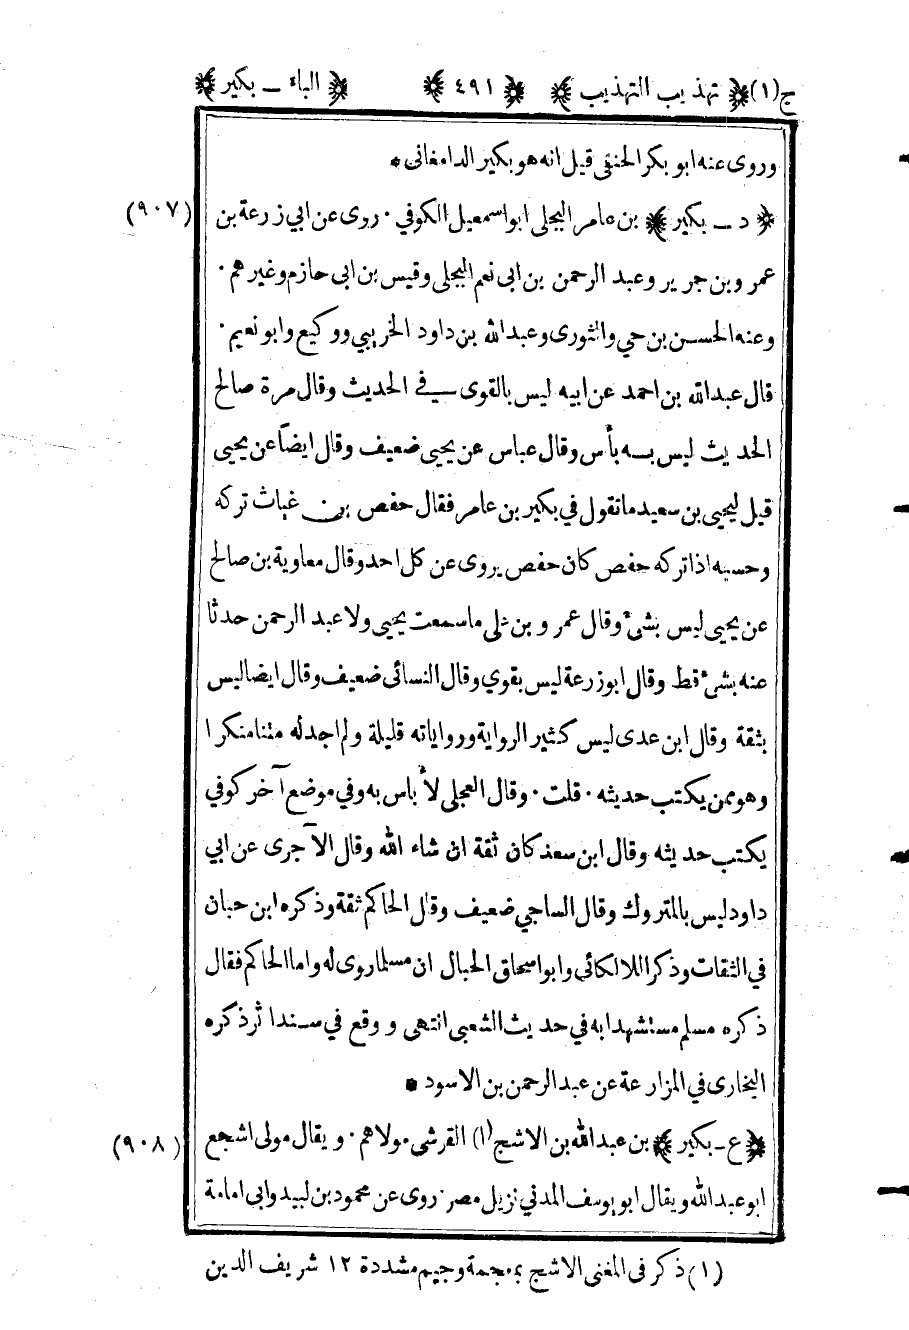 ج(١) ﴿ تهذيب التهذيب ﴾ ﴿ ٤٩١ ﴾ ﴿ الباء ــ بكير ﴾
وروى عنه ابو بكر الحنفى قيل انه هو بكير الدامغانى *
(٩٠٧) ﴿ د ــ بكير ﴾ بن عامر البجلى ابو اسمعيل الكوفي ۰ روى عن ابي زرعة بن
عمر و بن جرير وعبد الرحمن بن ابى نعم البجلى وقيس بن ابى حازم وغيرهم ۰
وعنه الحسن بن حي والثورى وعبد الله بن داود الخريبي ووكيع وابو نعيم ۰
قال عبد الله بن احمد عن ابيه ليس بالقوى في الحديث وقال مرة صالح
الحديث ليس به بأس وقال عباس عن يحيى ضعيف وقال ايضاً عن يحيى
قيل ليحيى بن سعيد ما تقول في بكير بن عامر فقال حفص بن غياث تركه
وحسبه اذا تركه حفص كان حفص يروى عن كل احد وقال معاوية بن صالح
عن يحيى ليس بشئ وقال عمر و بن على ما سمعت يحيى ولا عبد الرحمن حدثا
عنه بشئ قط وقال ابو زرعة ليس بقوي وقال النسائى ضعيف وقال ايضا ليس
بثقة وقال ابن عدى ليس كثير الرواية ورواياته قليلة ولم اجد له متنا منكرا
وهو ممن يكتب حديثه ۰ قلت ۰ وقال العجلى لا بأس به وفي موضع آخر كوفي
يكتب حديثه وقال ابن سعد كان ثقة ان شاء الله وقال الآجرى عن ابي
داود ليس بالمتروك وقال الساجي ضعيف وقال الحاكم ثقة وذكره ابن حبان
في الثقات وذكر اللالكائى وابو اسحاق الحبال ان مسلما روى له واما الحاكم فقال
ذكره مسلم مستشهدا به في حديث الشعبى انتهى و وقع في سند اثر ذكره
البخارى في المزارعة عن عبد الرحمن بن الاسود *
(٩٠٨) ﴿ ع ــ بكير ﴾ بن عبد الله بن الاشج (١) القرشى مولاهم ۰ ويقال مولى اشجع
ابو عبد الله ويقال ابو يوسف المدني نزيل مصر ۰ روى عن محمود بن لبيد وابى امامة
(١) ذكر فى المغنى الاشج بمعجمة وجيم مشددة ١٢ شريف الدين